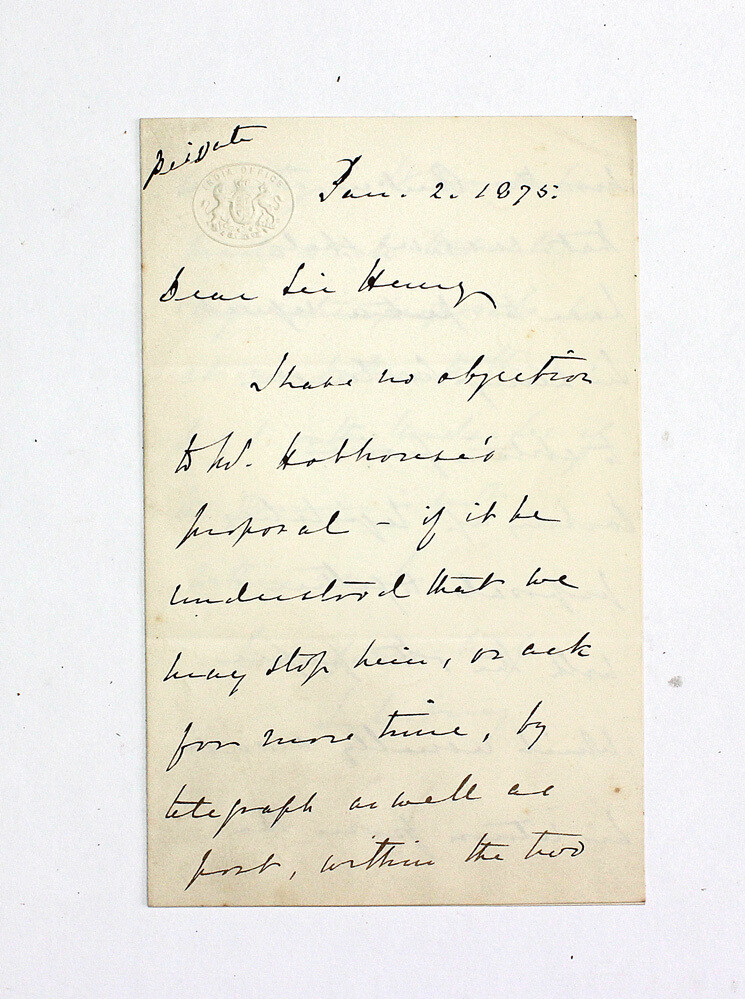 Private
INDIA OFFICE
Jan. 2. 1875.
Dear Sir Henry
I have no objection
to Mr. Hobhouse's
proposal – if it be
understood that we
may stop him, or ask
for more time, by
telegraph as well as
post, within the two